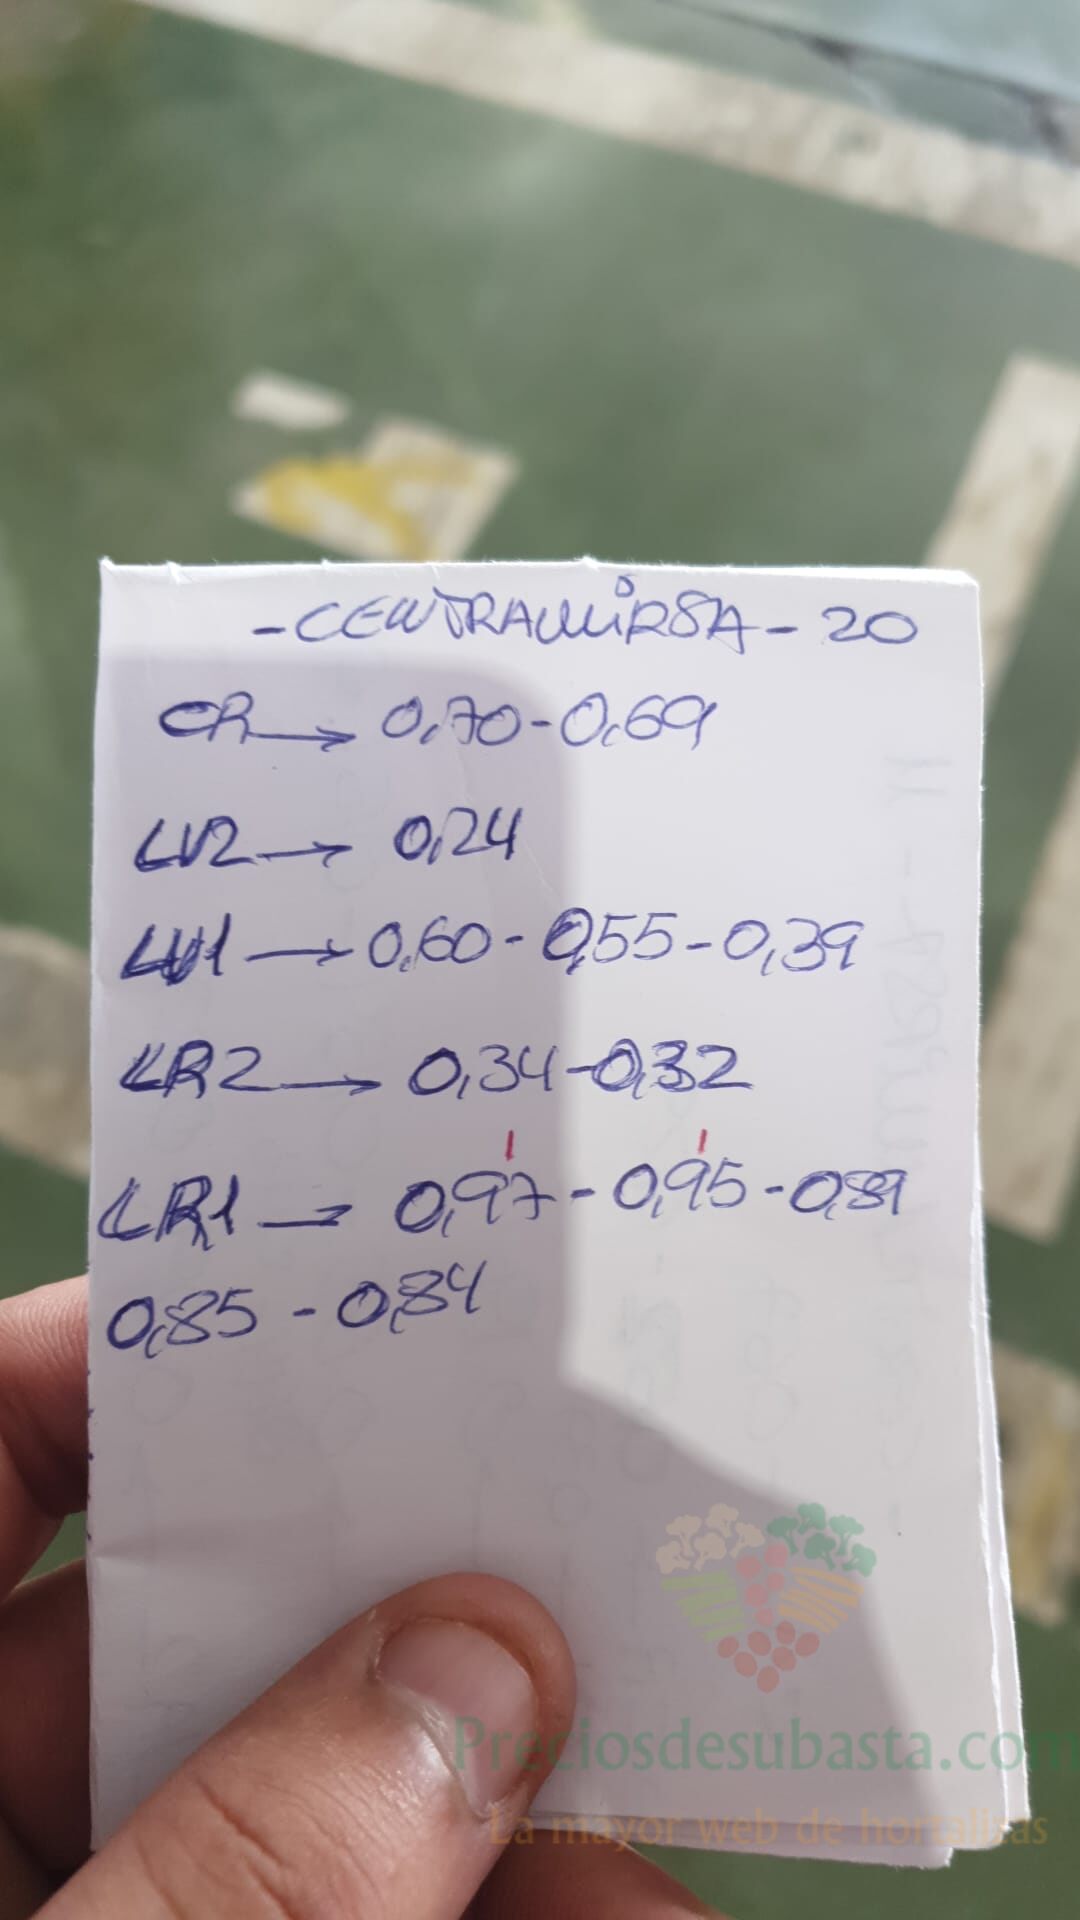 -CENTRAMIRSA- 20
CR → 0,70-0,69
LV2 → 0,24
LV1 → 0,60 - 0,55 - 0,39
LR2 → 0,34-0,32
LR1 → 0,97 - 0,95 - 0,89
0,85 - 0,84
Preciosdesubasta.com
La mayor web de hortalizas